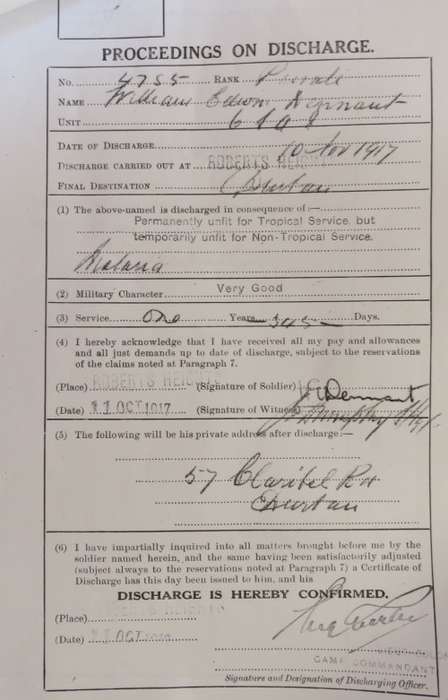 PROCEEDINGS ON DISCHARGE.
No. 4755 RANK Private
NAME William Edwin Dennant
UNIT
DATE OF DISCHARGE 10 Nov 1917
DISCHARGE CARRIED OUT AT ROBERTS HEIGHTS
FINAL DESTINATION Durban
(1) The above-named is discharged in consequence of:—
Permanently unfit for Tropical Service, but
temporarily unfit for Non-Tropical Service.
Malaria
(2) Military Character Very Good
(3) Service One Years 345 Days.
(4) I hereby acknowledge that I have received all my pay and allowances
and all just demands up to date of discharge, subject to the reservations
of the claims noted at Paragraph 7.
(Place) ROBERTS HEIGHTS (Signature of Soldier) Dennant
(Date) 11 OCT 1917 (Signature of Witness)
(5) The following will be his private address after discharge:—
57 Claribel Rd
Durban
(6) I have impartially inquired into all matters brought before me by the
soldier named herein, and the same having been satisfactorily adjusted
(subject always to the reservations noted at Paragraph 7) a Certificate of
Discharge has this day been issued to him, and his
DISCHARGE IS HEREBY CONFIRMED.
(Place) ROBERTS HEIGHTS
(Date) 11 OCT
CAMP COMMANDANT
Signature and Designation of Discharging Officer.